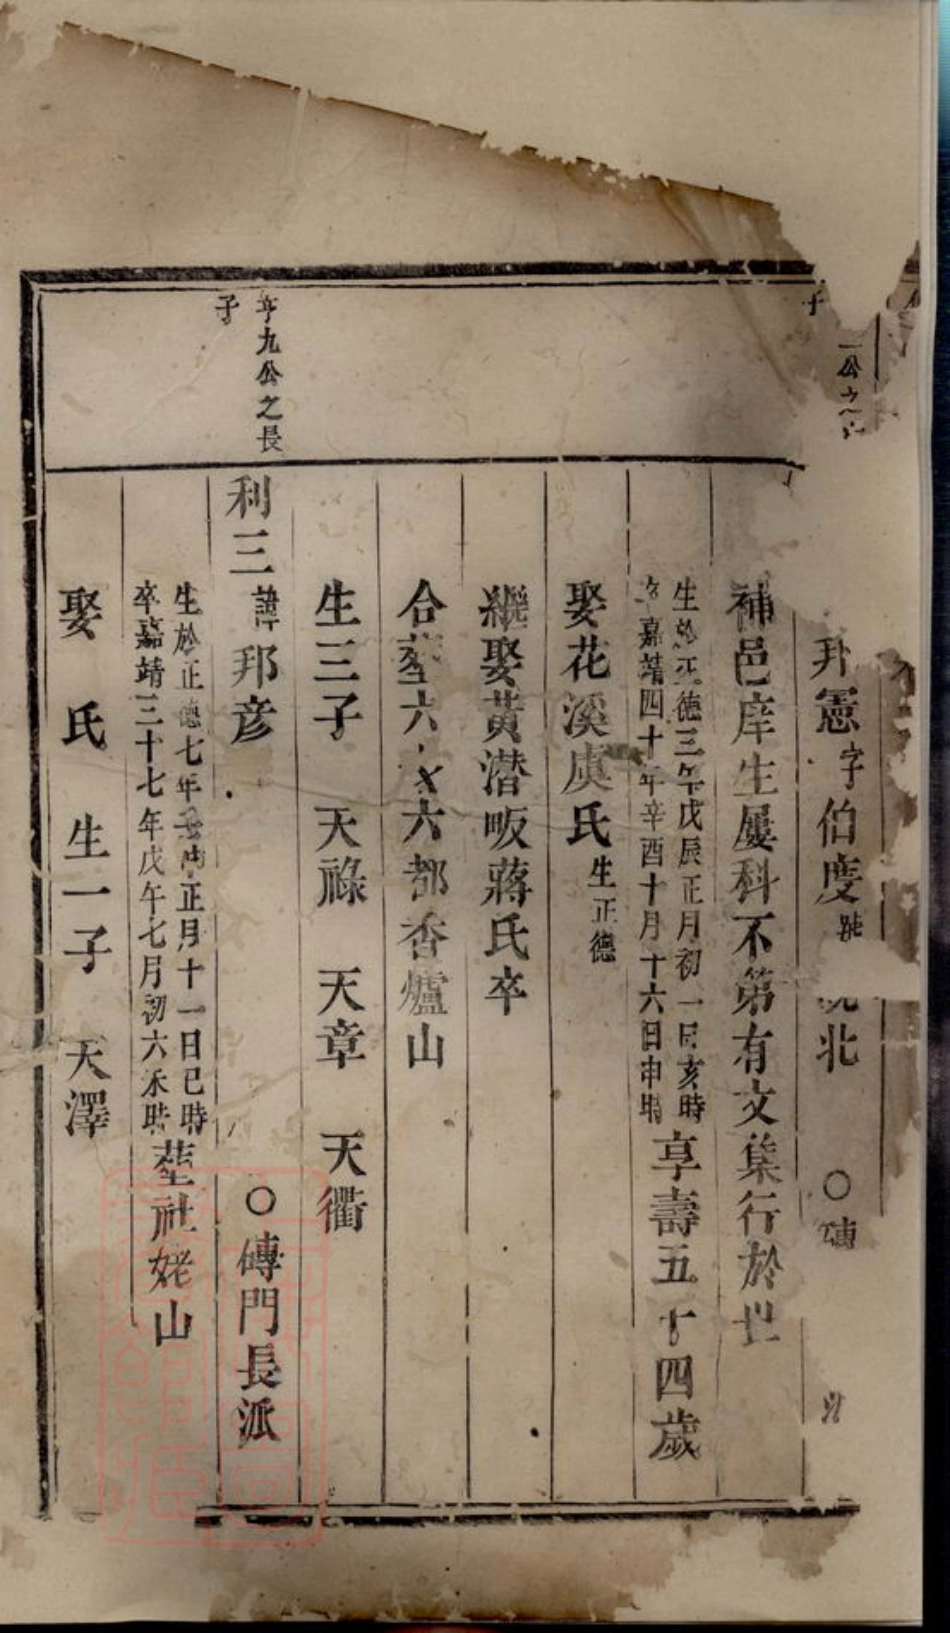 一公之
子
憲字伯度號 北 ○磚
補邑庠生屢科不第有文集行於世
生於正德三年戊辰正月初一日亥時
卒嘉靖四十年辛酉十月十六日申時
享壽五十四歲
娶花溪虞氏生正德
繼娶黃潜畈蔣氏卒
合塟六 六都香爐山
生三子 天祿 天章 天衢
亨九公之長
子
利三諱邦彦 ○磚門長派
生於正德七年 正月十一日巳時
卒嘉靖三十七年戊午七月初六未時
塟社姥山
娶 氏 生一子 天澤